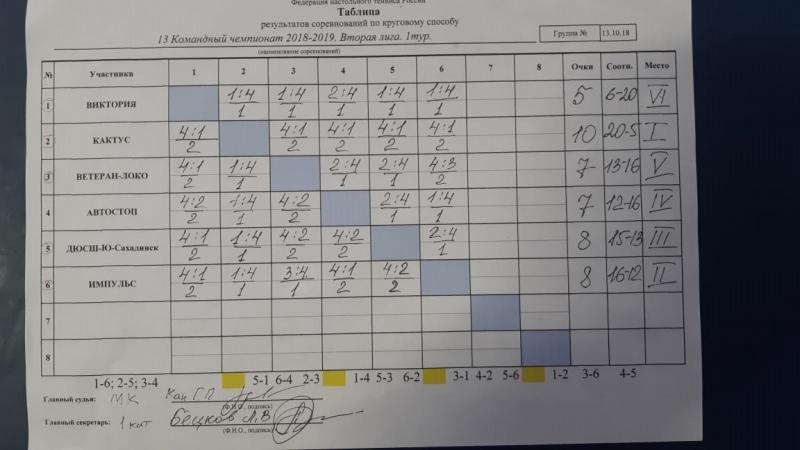 Федерация настольного тенниса России
Таблица
результатов соревнований по круговому способу
13 Командный чемпионат 2018-2019. Вторая лига. 1тур.
(наименование соревнований)
Группа № 13.10.18
№ Участники 1 2 3 4 5 6 7 8 Очки Соотн. Место
1 ВИКТОРИЯ 1:4/1 1:4/1 2:4/1 1:4/1 1:4/1 5 6-20 VI
2 КАКТУС 4:1/2 4:1/2 4:1/2 4:1/2 4:1/2 10 20-5 I
3 ВЕТЕРАН-ЛОКО 4:1/2 1:4/1 2:4/1 2:4/1 4:3/2 7 13-16 V
4 АВТОСТОП 4:2/2 1:4/1 4:2/2 2:4/1 1:4/1 7 12-16 IV
5 ДЮСШ-Ю-Сахалинск 4:1/2 1:4/1 4:2/2 4:2/2 2:4/1 8 15-13 III
6 ИМПУЛЬС 4:1/2 1:4/1 3:4/1 4:1/2 4:2/2 8 16-12 II
7
8
1-6; 2-5; 3-4 5-1 6-4 2-3 1-4 5-3 6-2 3-1 4-2 5-6 1-2 3-6 4-5
Главный судья: МК Кан Г.П
(Ф.И.О., подпись)
Главный секретарь: 1 кат Бецков А.В
(Ф.И.О., подпись)